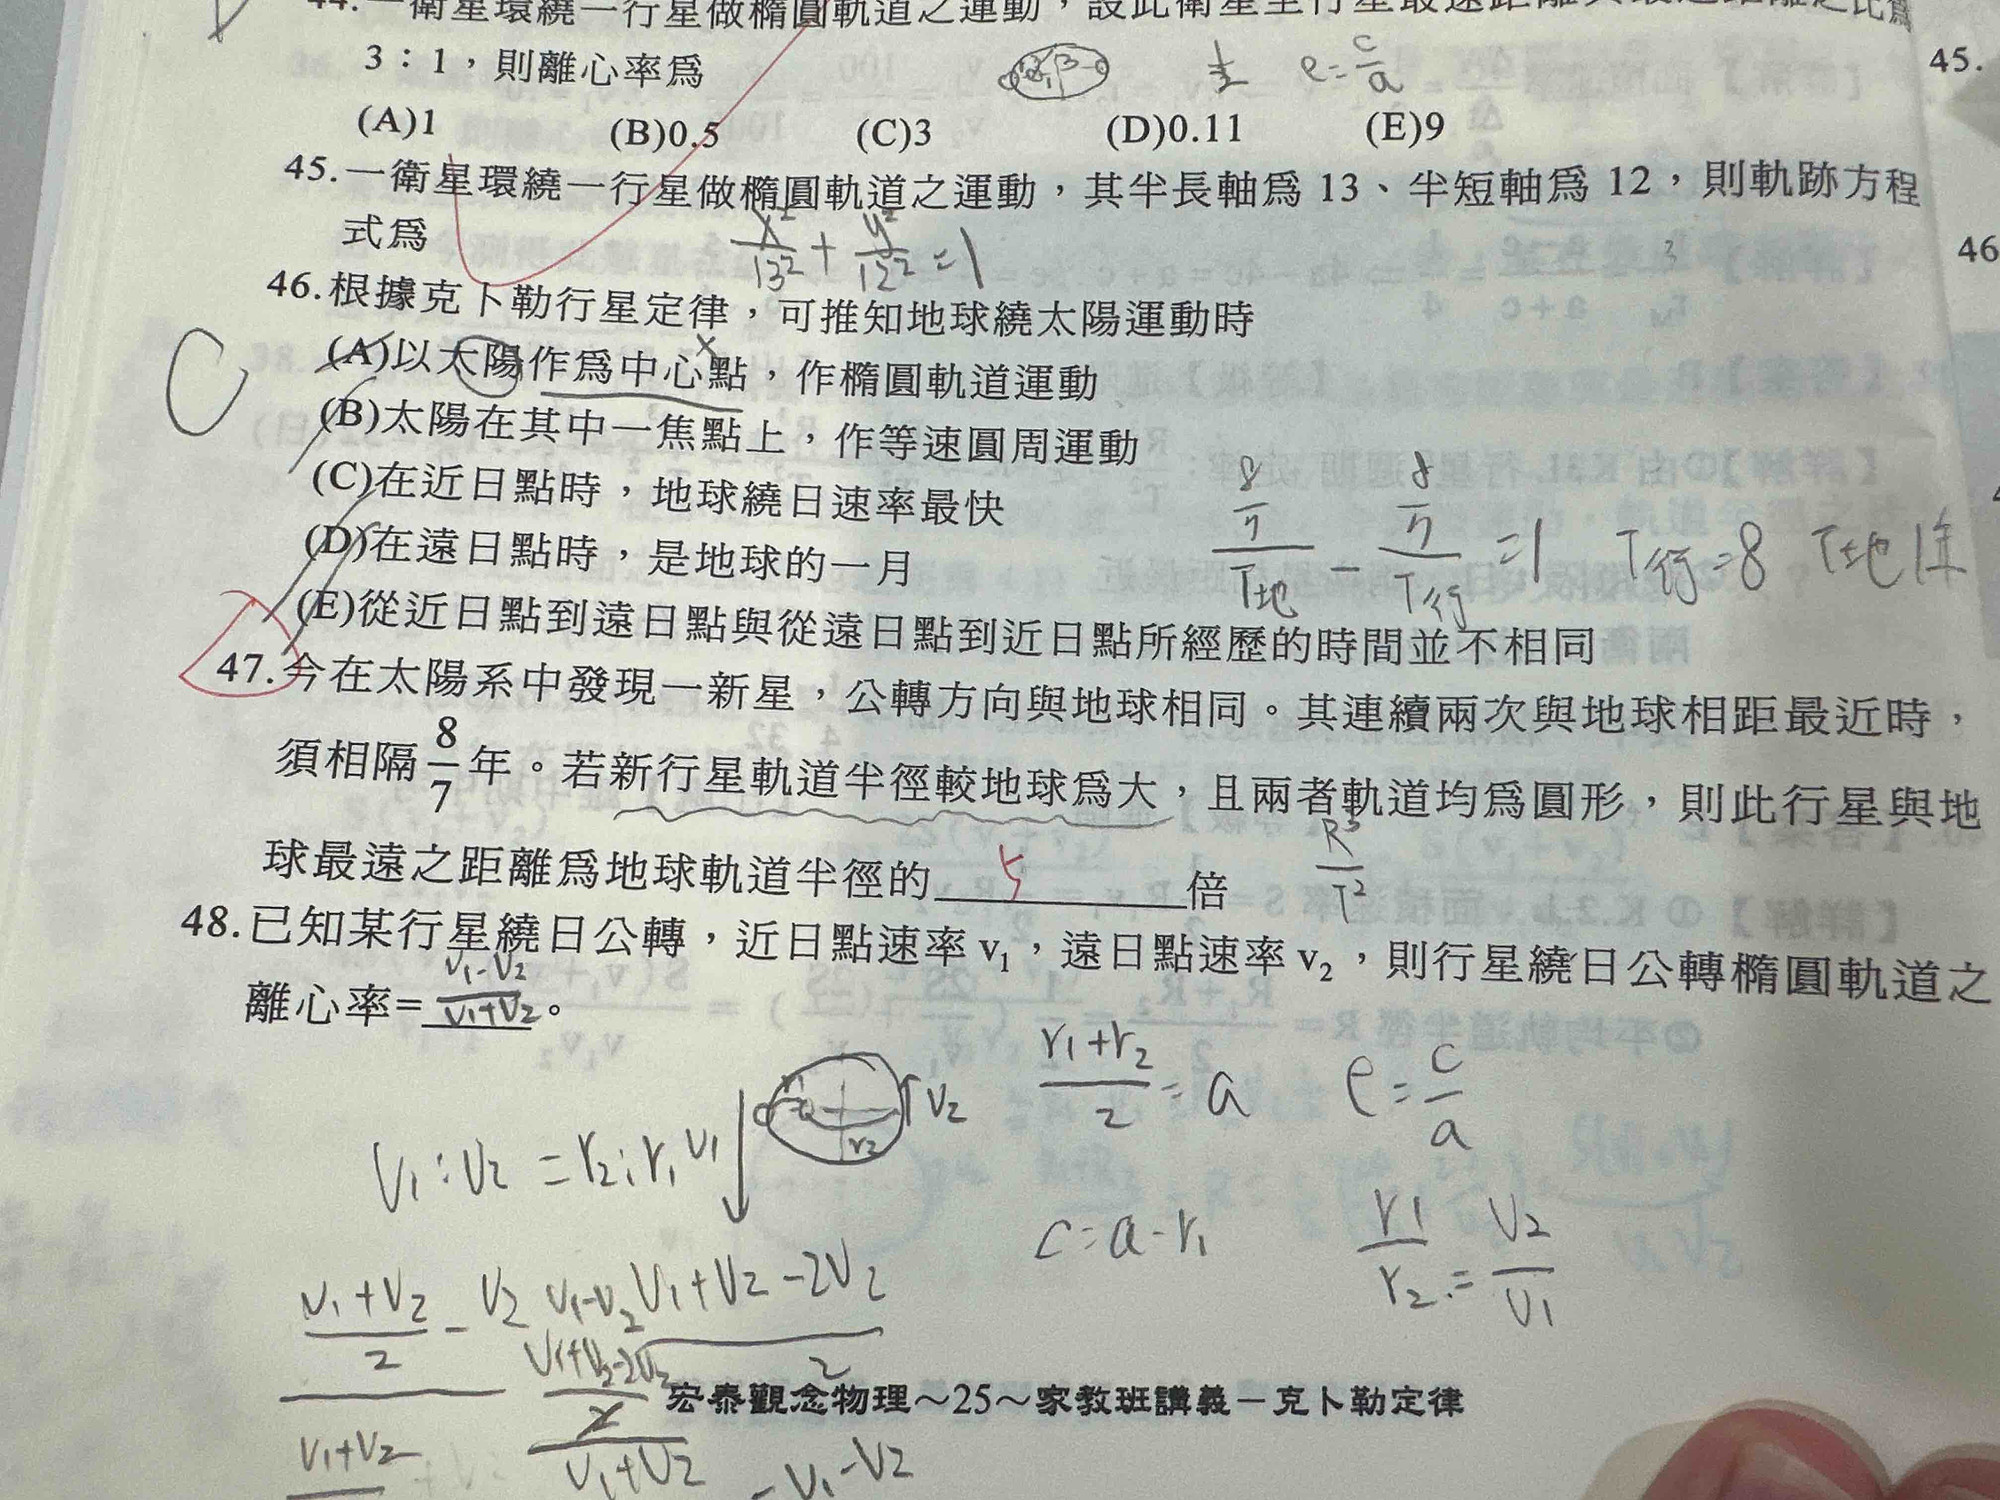 44.一衛星環繞一行星做橢圓軌道之運動，設此衛星至行星最遠距離與最近距離之比為
3：1，則離心率為
e=c/a
(A)1 (B)0.5 (C)3 (D)0.11 (E)9
45.一衛星環繞一行星做橢圓軌道之運動，其半長軸為 13、半短軸為 12，則軌跡方程
式為
x²/13² + y²/12² =1
46.根據克卜勒行星定律，可推知地球繞太陽運動時
C
(A)以太陽作為中心點，作橢圓軌道運動
(B)太陽在其中一焦點上，作等速圓周運動
(C)在近日點時，地球繞日速率最快
(D)在遠日點時，是地球的一月
(E)從近日點到遠日點與從遠日點到近日點所經歷的時間並不相同
8/7/T地 - 8/7/T行 =1 T行=8 T地1年
47.今在太陽系中發現一新星，公轉方向與地球相同。其連續兩次與地球相距最近時，
須相隔8/7年。若新行星軌道半徑較地球為大，且兩者軌道均為圓形，則此行星與地
球最遠之距離為地球軌道半徑的 5 倍
R³/T²
48.已知某行星繞日公轉，近日點速率 v₁，遠日點速率 v₂，則行星繞日公轉橢圓軌道之
離心率= V₁-V₂/V₁+V₂ 。
V₁:V₂=r₂:r₁
V₁
r₂
V₂
r₁+r₂/2=a
e=c/a
c=a-r₁
r₁/r₂=V₂/V₁
V₁+V₂/2 - V₂
V₁-V₂
V₁+V₂-2V₂/2
V₁+V₂-2V₂/2
V₁+V₂
V₁+V₂
=V₁-V₂
宏泰觀念物理～25～家教班講義－克卜勒定律
45.
46